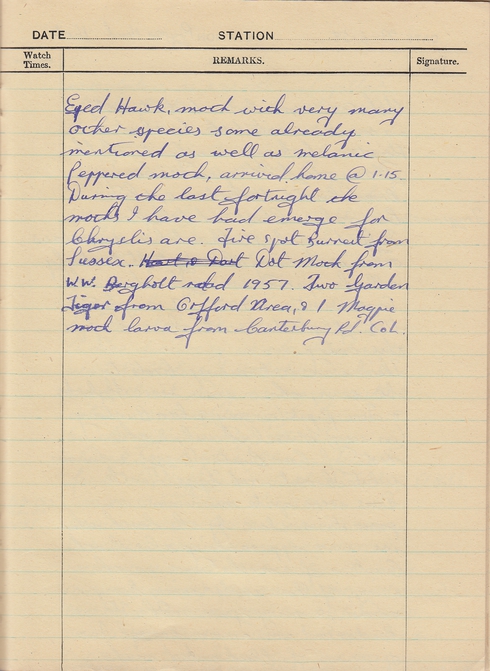 DATE STATION
Watch Times. REMARKS. Signature.
Eyed Hawk, moth with very many
other species some already
mentioned as well as melanic
Peppered moth, arrived home @ 1-15
During the last fortnight the
moths I have had emerge for
Chryslis are. Five Spot Burnett from
Sussex. Dot Moth from
W.W. Bergholt 1957. Two Garden
Tiger from Area, & 1 Magpie
moth larva from Canterbury Rd. Col.